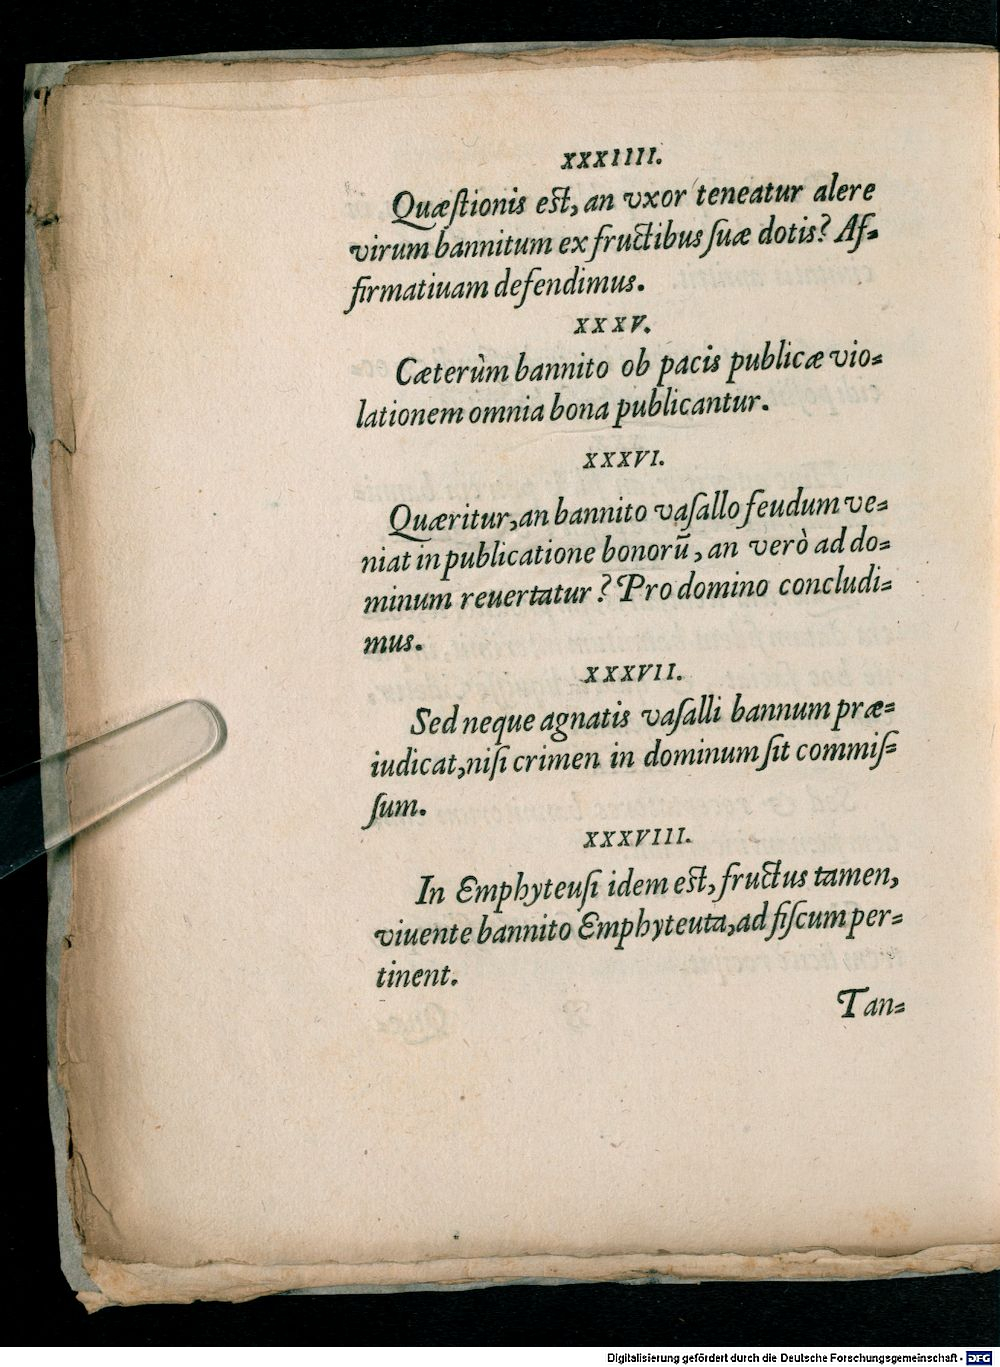 XXXIIII.
Quæſtionis eſt, an vxor teneatur alere
virum bannitum ex fructibus ſuæ dotis? Af=
firmatiuam defendimus.
XXXV.
Cæterùm bannito ob pacis publicæ vio=
lationem omnia bona publicantur.
XXXVI.
Quæritur, an bannito vaſallo feudum ve=
niat in publicatione bonorū, an verò ad do=
minum reuertatur? Pro domino concludi=
mus.
XXXVII.
Sed neque agnatis vaſalli bannum præ=
iudicat, niſi crimen in dominum ſit commiſ=
ſum.
XXXVIII.
In Emphyteuſi idem eſt, fructus tamen,
viuente bannito Emphyteuta, ad fiſcum per=
tinent.
Tan=
Digitalisierung gefördert durch die Deutsche Forschungsgemeinschaft - DFG